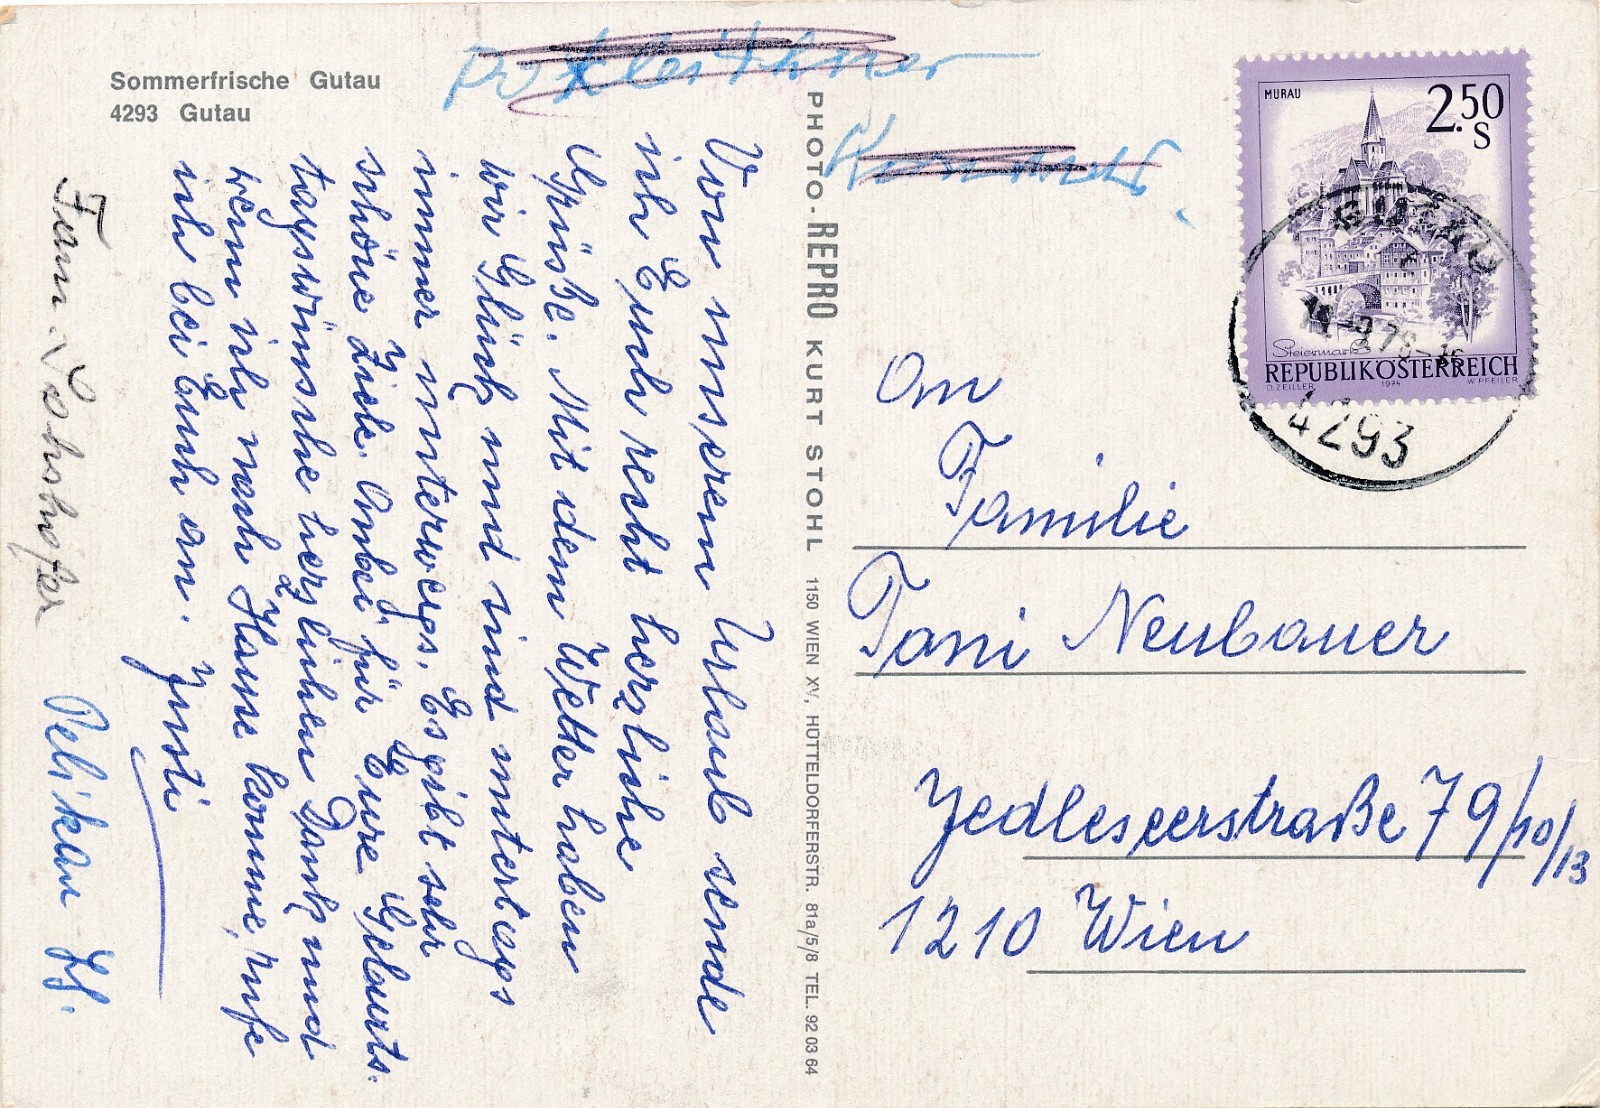 Sommerfrische Gutau
4293 Gutau
Von unserem Urlaub sende
ich Euch recht herzliche
Grüße. Mit dem Wetter haben
wir Glück und sind untertags
immer unterwegs. Es gibt sehr
schöne Ziele. Anbei für Eure Geburts-
tagswünsche herzlichen Dank und
wenn ich nach Hause komme, rufe
ich bei Euch an. Justi
Fam. Lohshofer
Pelikan
PHOTO-REPRO KURT STOHL 1150 WIEN XV, HÜTTELDORFERSTR. 81a/5/8 TEL. 92 03 64
MURAU
2.50
S
Steiermark
REPUBLIK ÖSTERREICH
O. ZEILLER 1974 W. PFEILER
GUTAU
4293
An
Familie
Toni Neubauer
Jedleseerstraße 79/10/13
1210 Wien